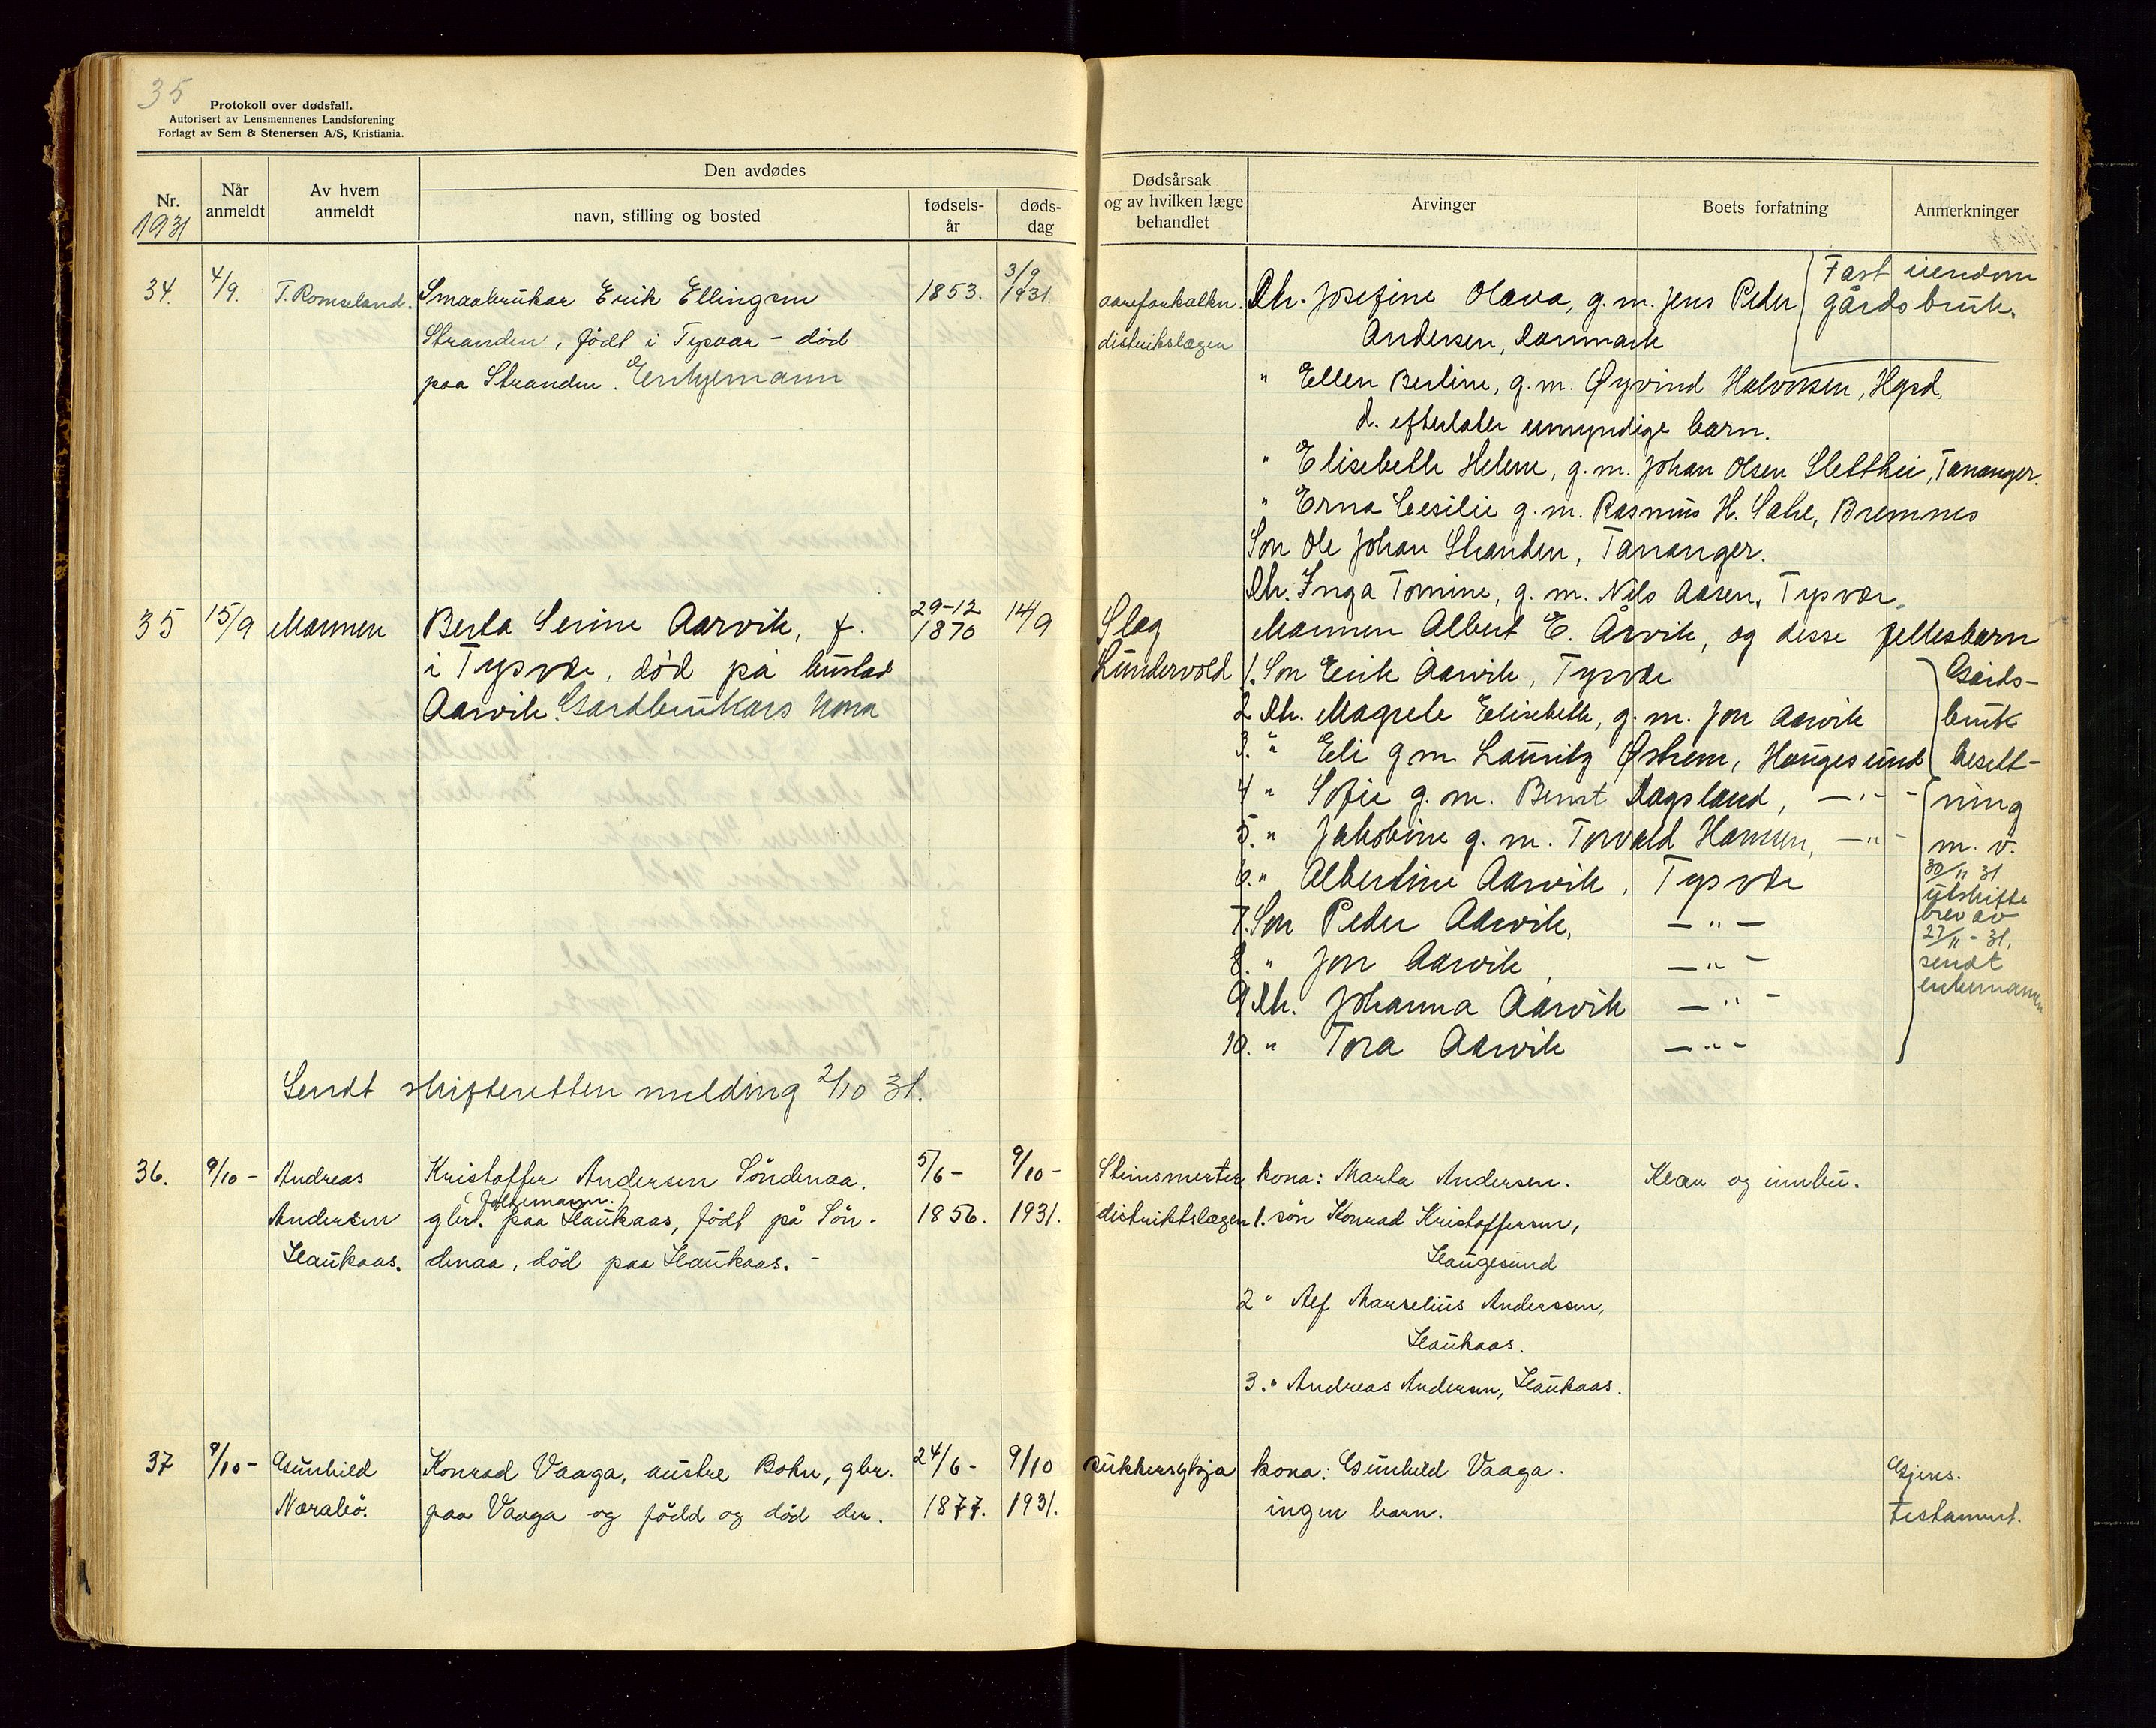 35
Protokoll over dødsfall.
Autorisert av Lensmennenes Landsforening
Forlagt av Sem & Stenersen A/S, Kristiania.
Nr.
1931
Når
anmeldt
Av hvem
anmeldt
Den avdødes
navn, stilling og bosted
fødsels-
år
døds-
dag
Dødsårsak
og av hvilken læge
behandlet
Arvinger
Boets forfatning
Anmerkninger
34. 4/9. T. Romseland. Smaabrukar Erik Ellingsen 1853. 3/9 1931.
Stranden, født i Tysvær - død
paa Stranden. Enkjemann
aareforkalkn.
distriktslægen
Dtr. Josefine Olava, g. m. Jens Peder
Andersen, Danmark
" Ellen Berline, g. m. Øyvind Halvorsen, Hgsd.
d. efterlater umyndige barn.
" Elisebeth Helene, g. m. Johan Olsen Sletthei, Tananger.
" Erna Cesilie g. m. Rasmus H. Sahe, Bremnes
Søn Ole Johan Stranden, Tananger.
Dtr. Inga Tomine, g. m. Nils Aasen, Tysvær.
Fast eiendom
gårdsbruk.
35 15/9 Mannen Berta Serine Aarvik, f. 29-12 1870 14/9
i Tysvær, død på bustad
Aarvik. Gardbrukars kona
Slag
Lundervold
Mannen Albert E. Årvik, og disse fellesbarn
1. Søn Erik Aarvik, Tysvær
2 Dtr. Magrete Elisebeth, g. m. Jon Aarvik
3. " Eli g m Lauritz Østrem, Haugesund
4 " Sofie g. m. Bernt Dagsland, — " —
5. " Jakobine g. m. Torvald Hansen, — " —
6. " Albertine Aarvik, Tysvær
7. Søn Peder Aarvik, — " —
8. " Jon Aarvik, — " —
9 Dtr. Johanna Aarvik — " —
10. " Tora Aarvik — " —
Gårds-
bruk
besett-
ning
m. v.
30/11 31
utskifte
brev av
27/11 - 31.
sendt
enkemannen
Sendt skifteretten melding 2/10 31.
36. 9/10 - Andreas Kristoffer Andersen Söndenaa, 5/6 - 9/10 -
(Folgemann.)
Andersen gbr. paa Haukaas, født på Sön- 1856. 1931.
Haukaas. denaa, död paa Haukaas. -
Stinsmerter
distriktslægen
kona: Marta Andersen.
1. søn Konrad Kristoffersen,
Haugesund
2 " Alf Marselius Anderssen,
Haukaas.
3. " Andreas Andersen, Haukaas.
Klær og innbu.
37 9/10 - Gunhild Konrad Vaaga, austre Bokn, gbr. 24/6 - 9/10
Nærabö. paa Vaaga og född og död der. 1877. 1931.
sukkersykja
kona: Gunhild Vaaga.
ingen barn.
Gjens.
testament.